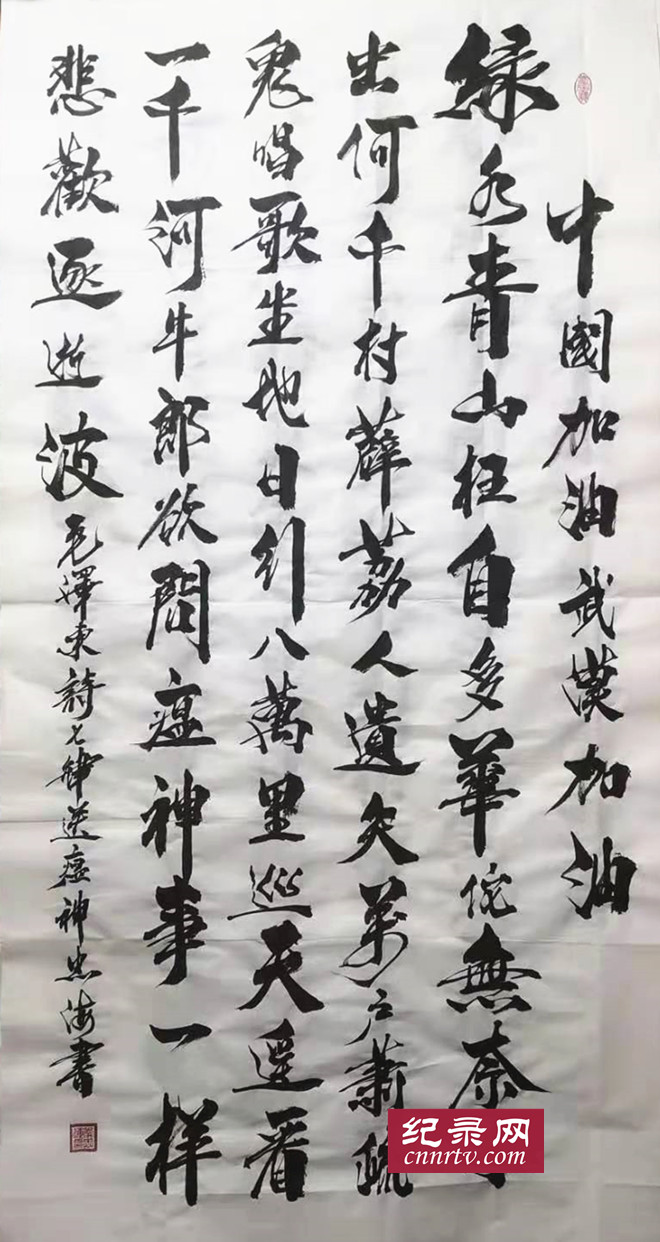 中國加油武漢加油
緑水青山枉自多華佗無奈
虫何千村薜荔人遺矢萬户蕭疏
鬼唱歌坐地日行八萬里巡天遥看
一千河牛郎欲問瘟神事一样
悲歡逐逝波
毛澤東詩七律送瘟神忠海書
纪录网
cnnrtv.com